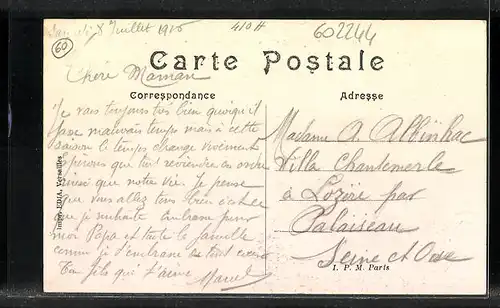 8 Juillet 1916
410 H
602244
60
Carte Postale
Chère Maman
Correspondance
Adresse
Je vais toujours très bien quoiqu'il
fasse mauvais temps mais à cette
saison le temps change vivement
Espérons que tout reviendra en ordre
ainsi que notre vie. Je pense
que vous allez tous bien c'est ce
que je souhaite embrasse pour
moi Papa et toute la famille
comme je t'embrasse de tout cœur
Ton fils qui t'aime Marcel
Madame A. Albinhac
Villa Chantemerle
à Lozère par
Palaiseau
Seine et Oise
I. P. M. Paris
Imp. E.D.I.A. Versailles